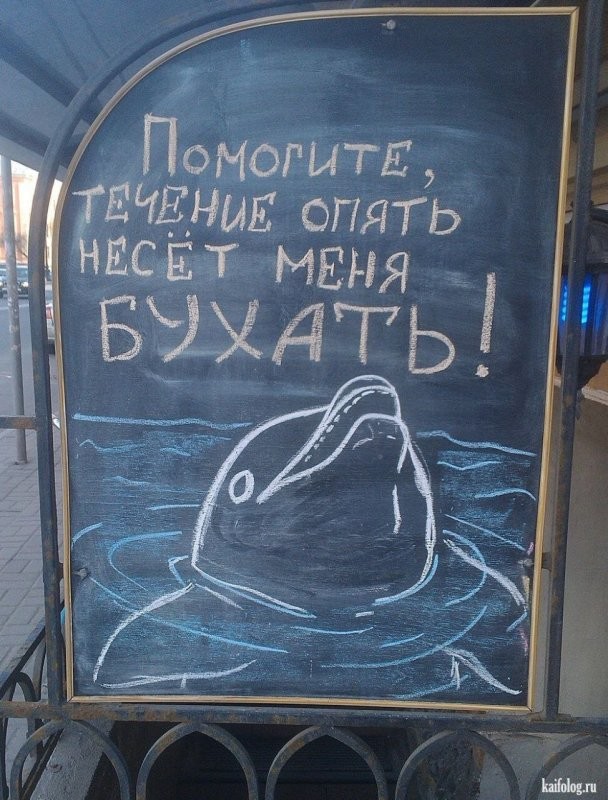 Помогите,
течение опять
несёт меня
БУХАТЬ!
kaifolog.ru